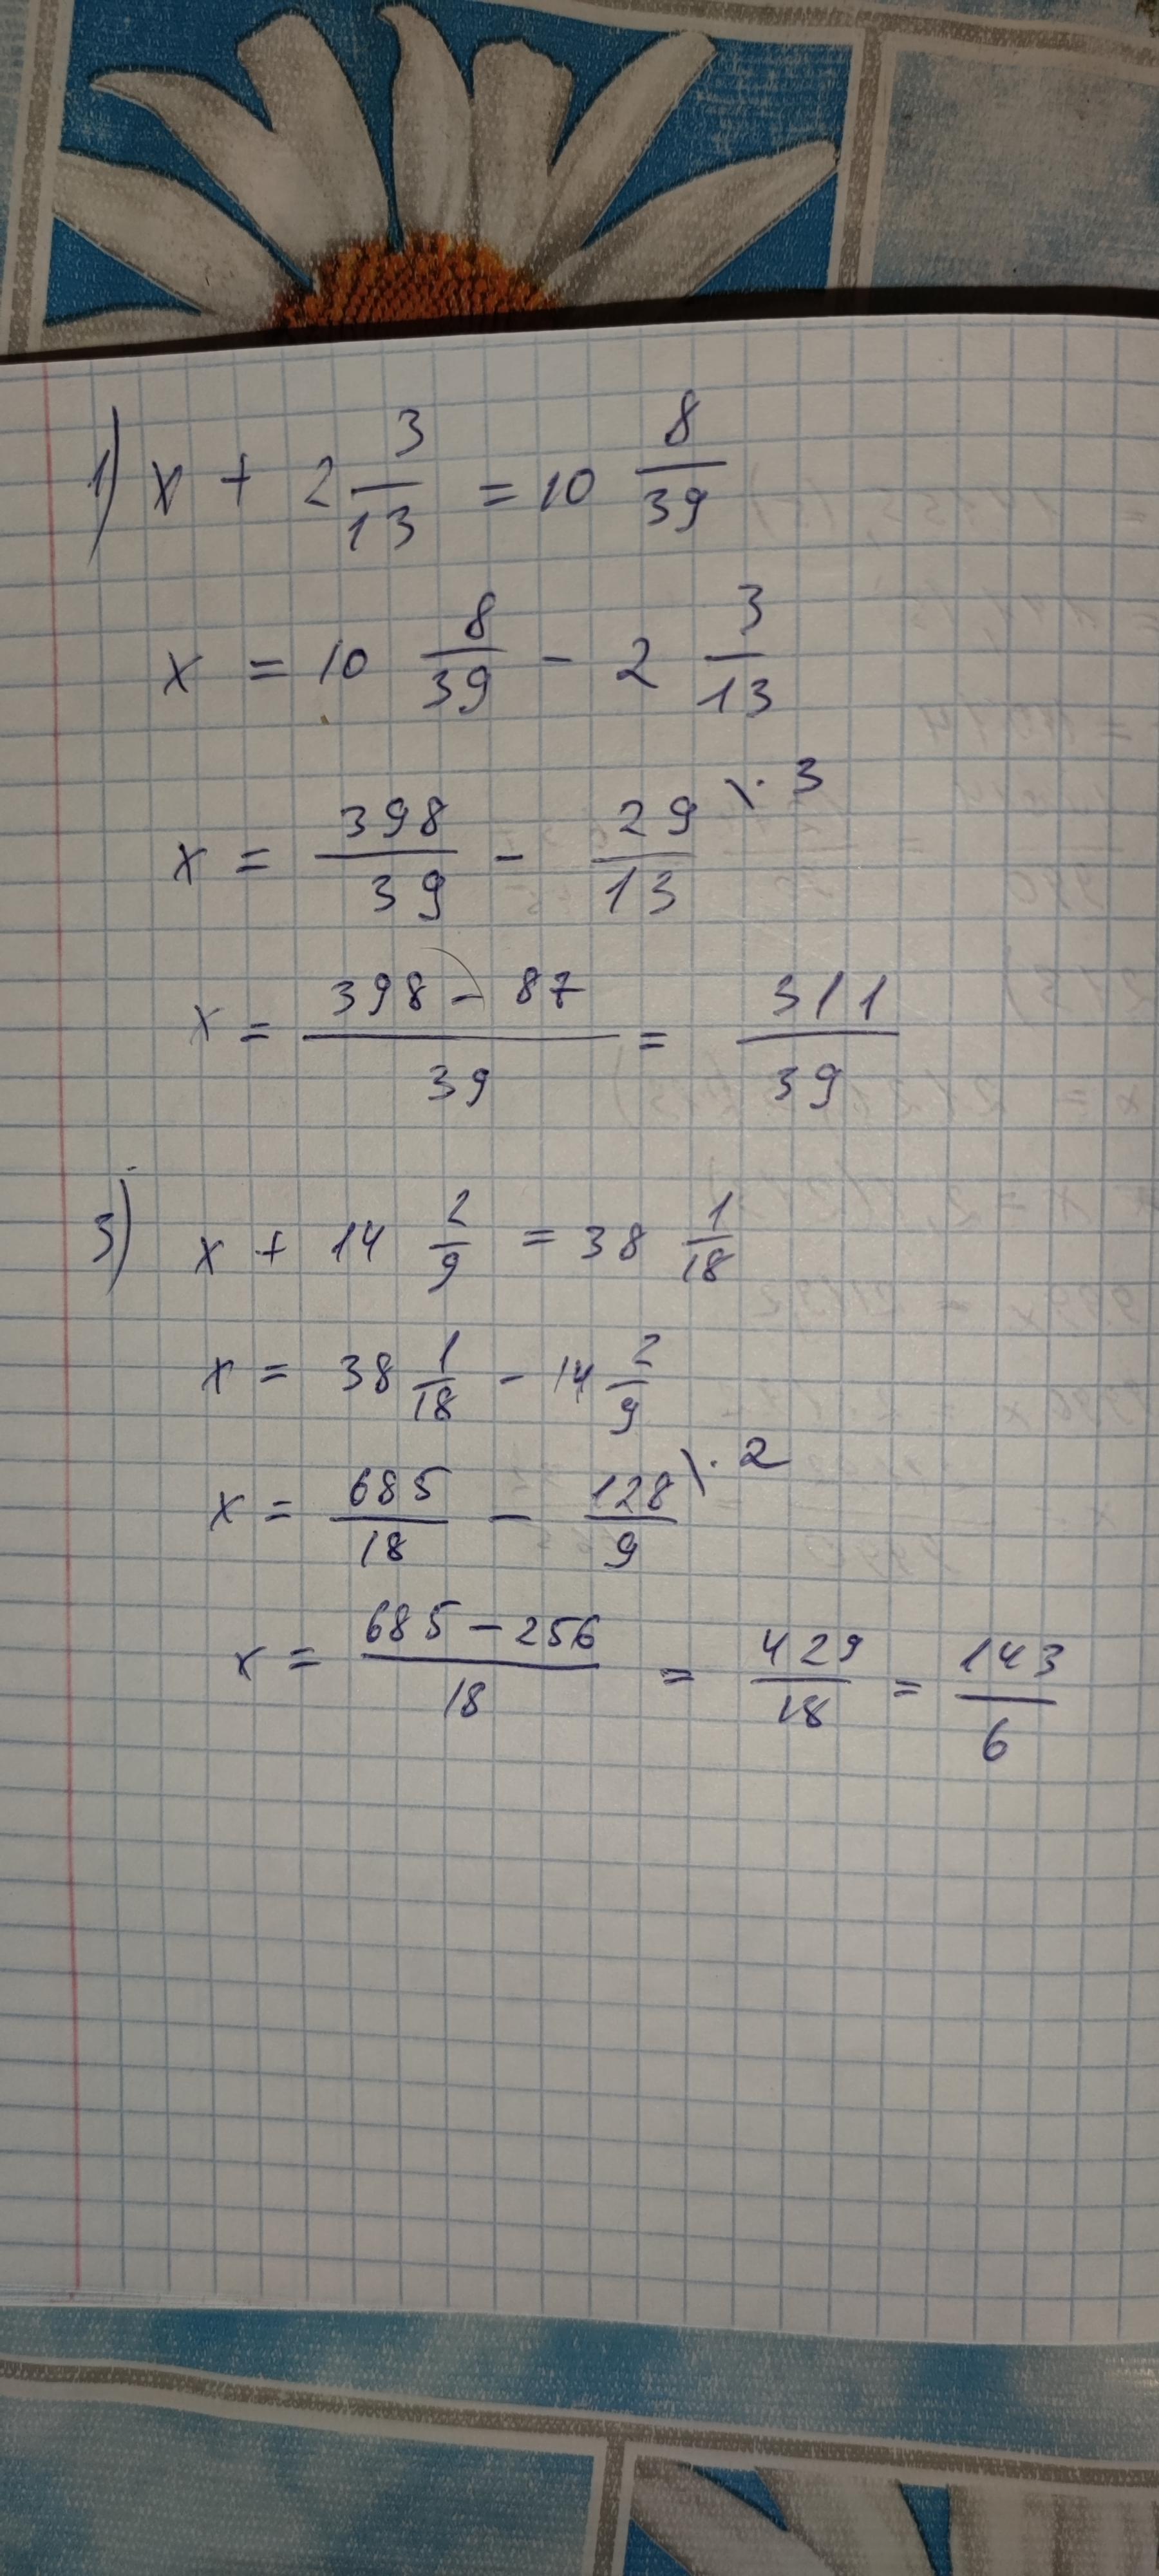 1) x + 2 3/13 = 10 8/39
x = 10 8/39 - 2 3/13
x = 398/39 - 29/13 \· 3
x = (398 - 87)/39 = 311/39
3) x + 14 2/9 = 38 1/18
x = 38 1/18 - 14 2/9
x = 685/18 - 128/9 \· 2
x = (685 - 256)/18 = 429/18 = 143/6